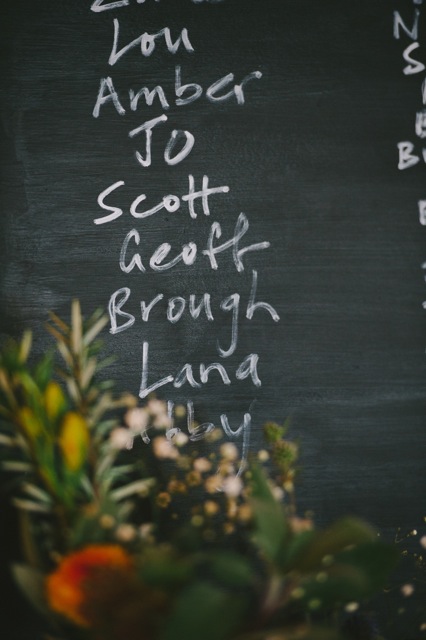 Lou
Amber
Jo
Scott
Geoff
Brough
Lana
Abby